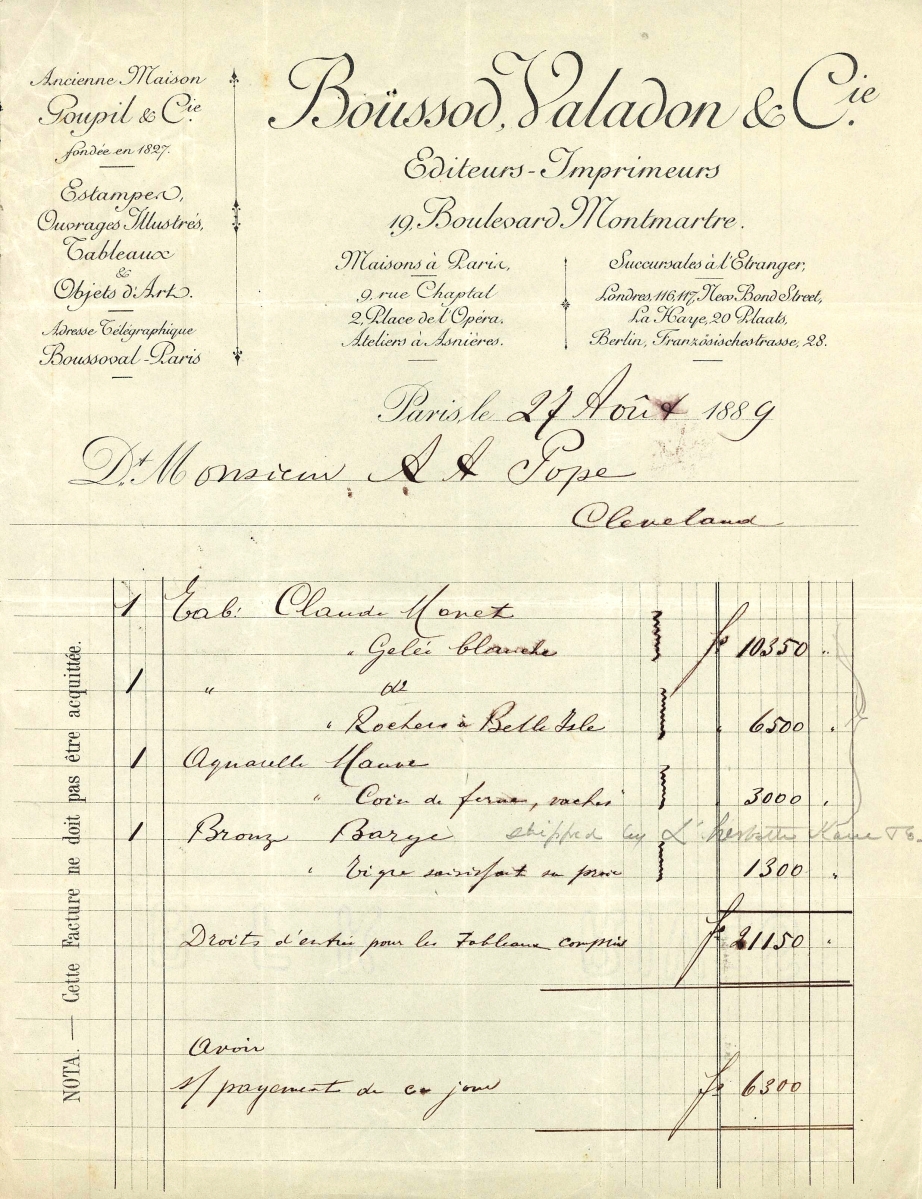 Ancienne Maison
Goupil & Cie.
fondée en 1827.
Estampes,
Ouvrages Illustrés,
Tableaux
&
Objets d'Art.
Adresse Télégraphique
Boussoval-Paris
Boussod, Valadon & Cie.
Editeurs-Imprimeurs
19, Boulevard Montmartre.
Maisons à Paris,
9, rue Chaptal
2, Place de l'Opéra,
Ateliers à Asnières.
Succursales à l'Etranger,
Londres, 116, 117, New Bond Street,
La Haye, 20 Plaats,
Berlin, Französischestrasse, 28.
Paris, le 27 Août 1889
Dt. Monsieur A A Pope
Cleveland
NOTA. — Cette Facture ne doit pas être acquittée.
1 Tab: Claude Monet
" Gelée blanche fs 10350 "
1 " do
" Rochers à Belle Isle " 6500 "
1 Aquarelle Mauve
" Coin de ferme, vaches " 3000 "
1 Bronze Barye shipped by
" Tigre saisissant sa proie 1300 "
Droits d'entrée pour les Tableaux compris fs 21150 "
Avoir
s/ payement de ce jour fs 6300